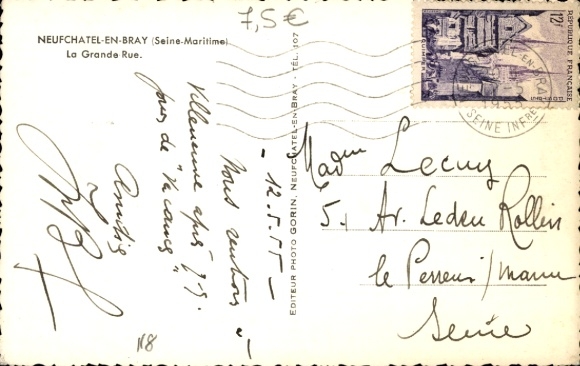 7,5 €
NEUFCHATEL-EN-BRAY (Seine-Maritime)
La Grande Rue.
- 12.5.55 -
Nous rentrons à
Villeneuve après 
jours de "Vacances"
Amitiés
EDITEUR PHOTO GORIN, NEUFCHATEL-EN-BRAY - TÉL. 107
12F
REPUBLIQUE FRANÇAISE
POSTES
SEINE INFRE
Madame Lecuy
5. Av. Ledru Rollin
le Perreux/Marne
Seine
N8